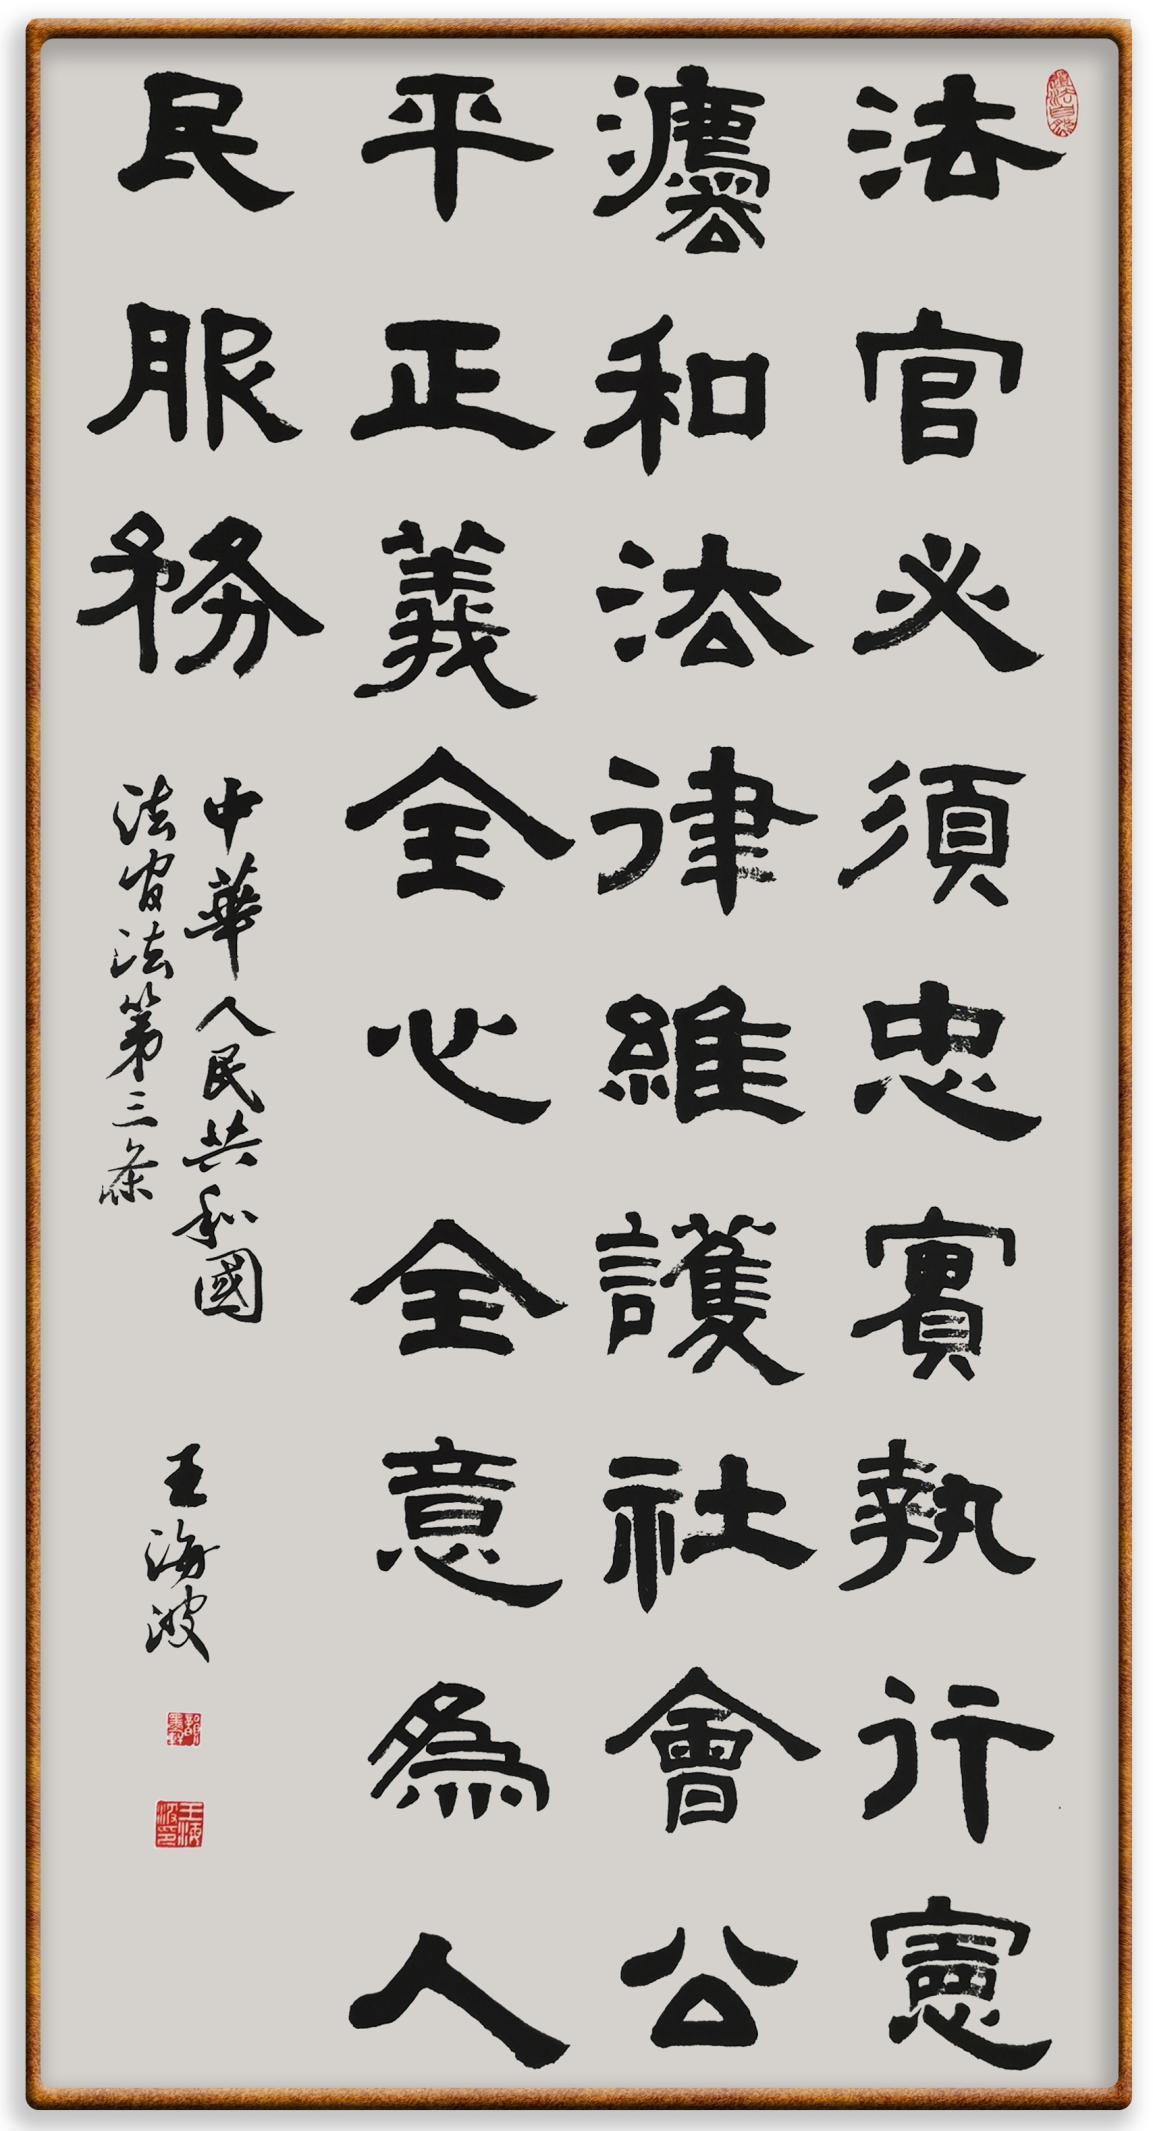 法官必須忠實執行憲
灋和法律維護社會公
平正義全心全意為人
民服務
中華人民共和國
法官法第三条
王海波
道法自然
王海波印